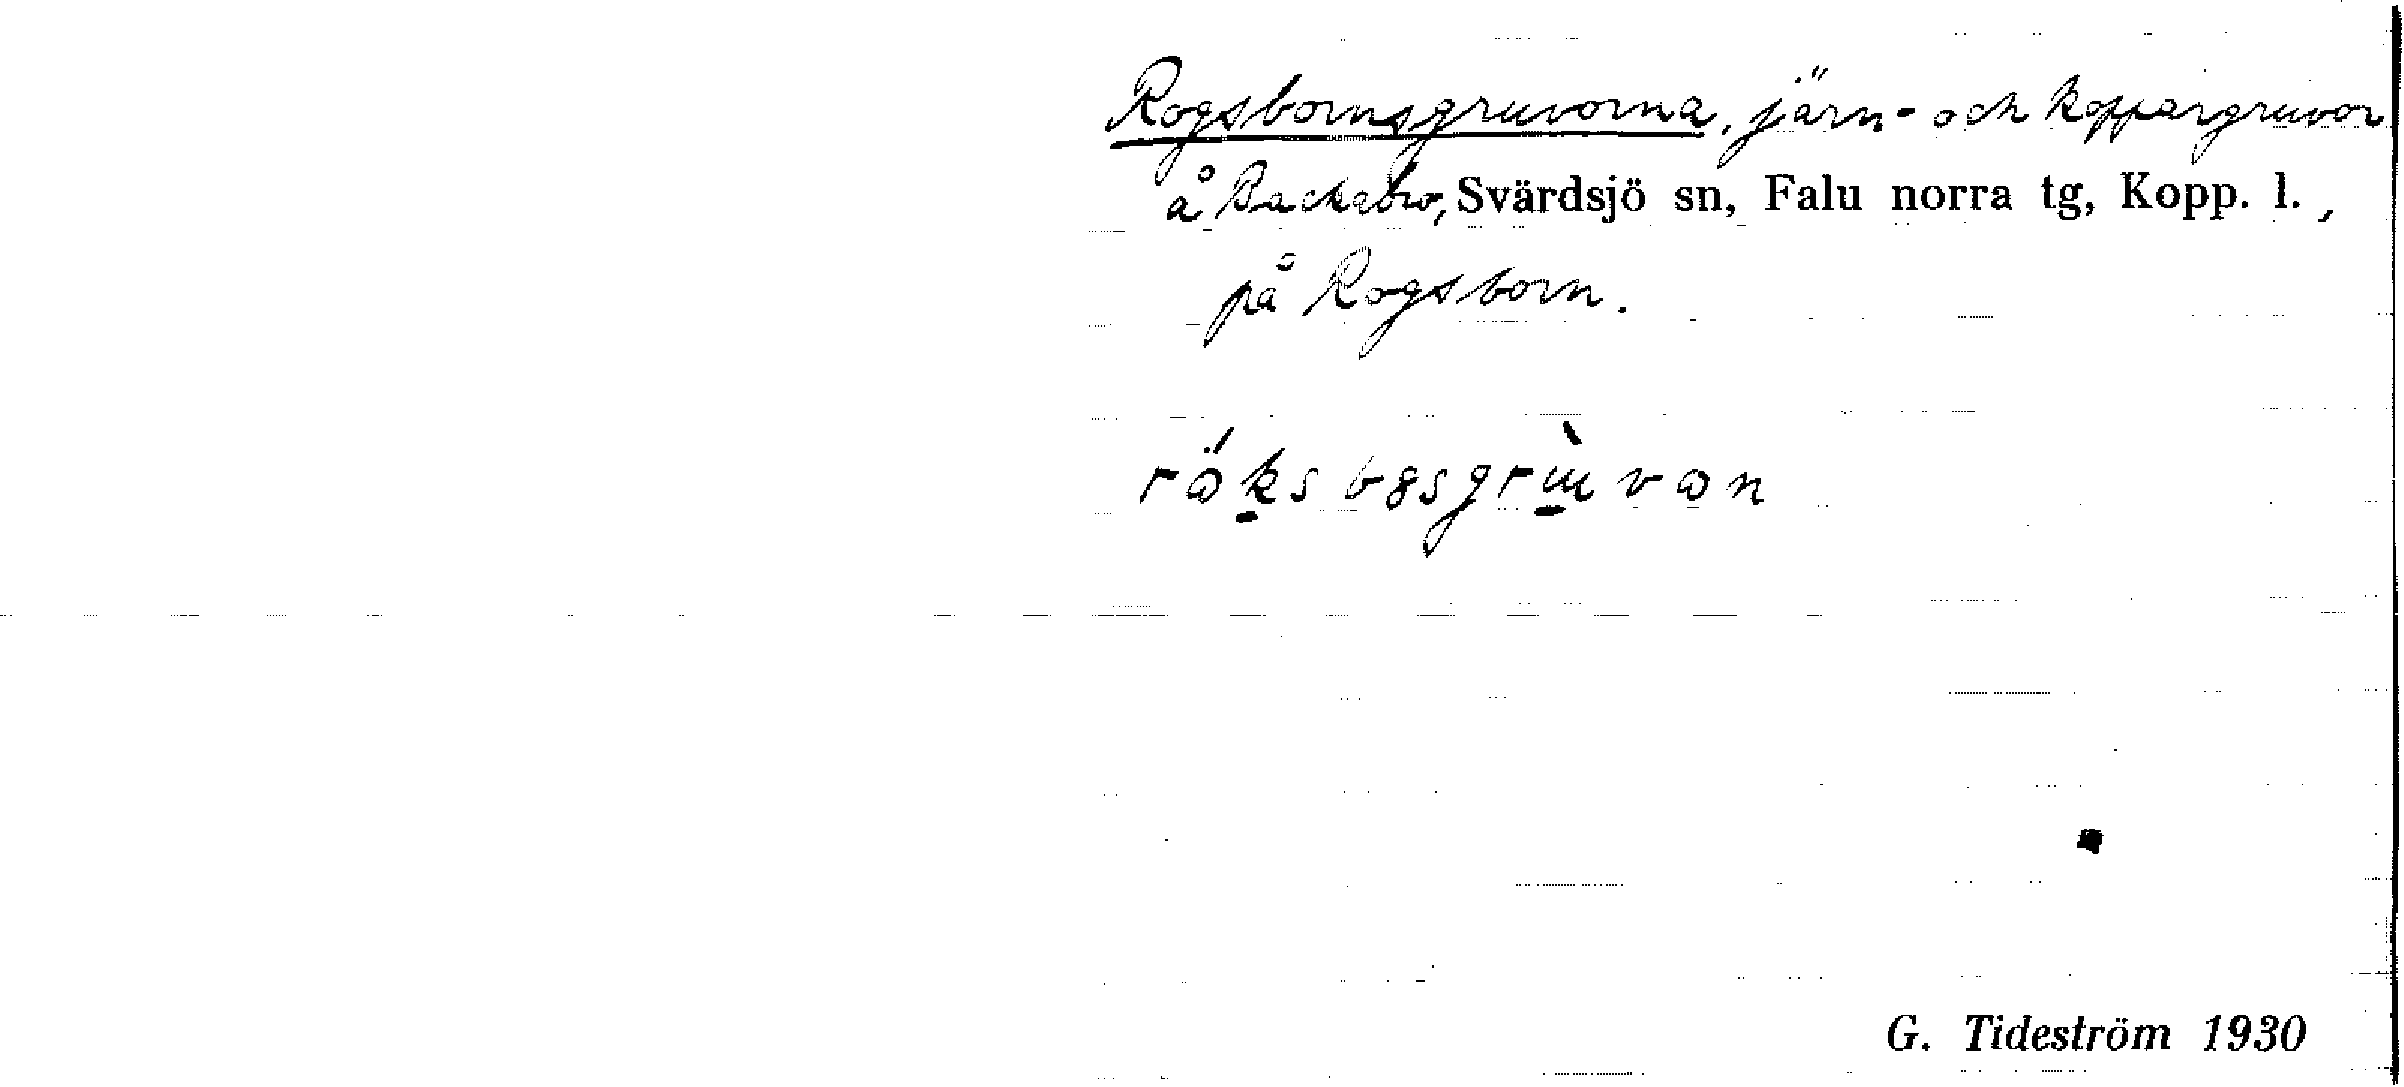 Rogsbornsgruvorna, järn- och koppargruvor
å Backebro, Svärdsjö sn, Falu norra tg, Kopp. l.,
på Rogsborn.
G. Tideström 1930